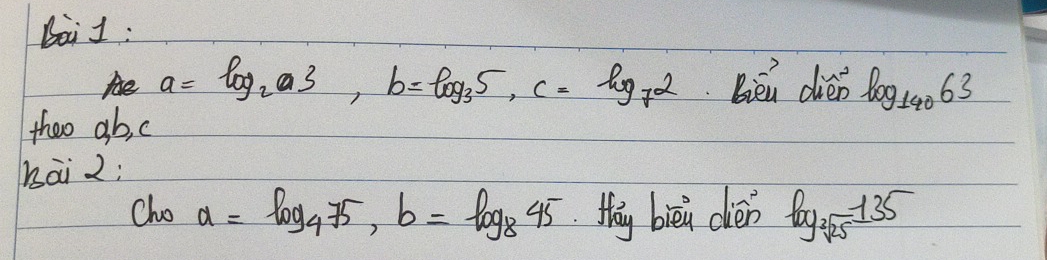 Bài 1:
a = log₂ 3, b = log₃5, c = log₇2. Biểu diễn log₁₄₀ 63
theo a,b,c
Bài 2:
Cho a = log₄75, b = log₈ 45. Hãy biểu diễn log_∛25 135